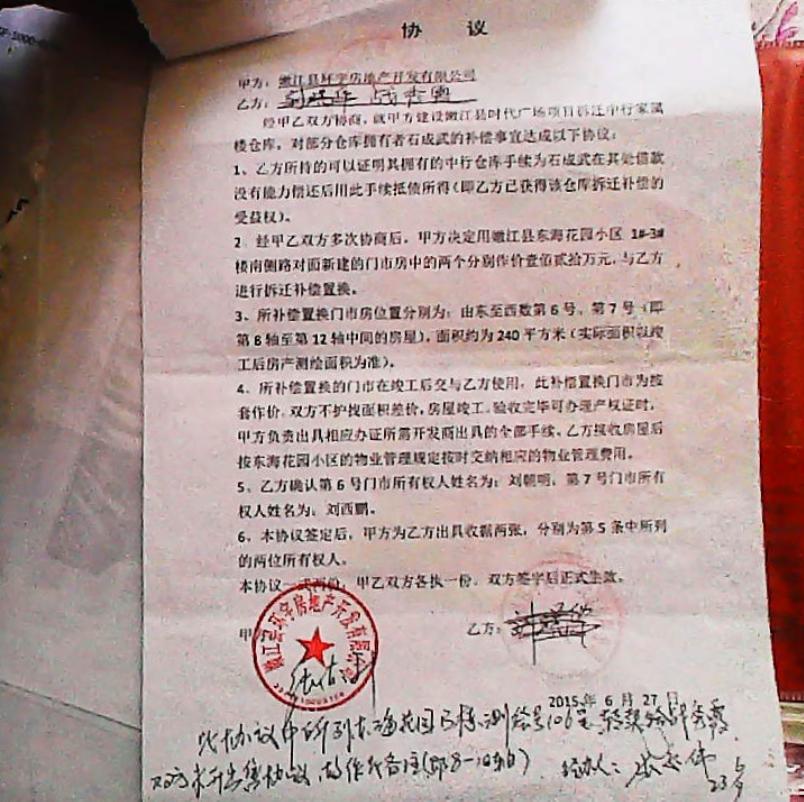 协 议
甲方：嫩江县环宇房地产开发有限公司
乙方：
经甲乙双方协商，就甲方建设嫩江县时代广场项目拆迁中行家属
楼仓库，对部分仓库拥有者石成武的补偿事宜达成以下协议：
1、乙方所持的可以证明其拥有的中行仓库手续为石成武在其处借款
没有能力偿还后用此手续抵债所得（即乙方已获得该仓库拆迁补偿的
受益权）。
2、经甲乙双方多次协商后，甲方决定用嫩江县东海花园小区 1#-3#
楼南侧路对面新建的门市房中的两个分别作价壹佰贰拾万元，与乙方
进行拆迁补偿置换。
3、所补偿置换门市房位置分别为：由东至西数第 6 号、第 7 号（即
第 8 轴至第 12 轴中间的房屋），面积约为 240 平方米（实际面积以竣
工后房产测绘面积为准）。
4、所补偿置换的门市在竣工后交与乙方使用，此补偿置换门市为按
套作价，双方不护找面积差价，房屋竣工、验收完毕可办理产权证时，
甲方负责出具相应办证所需开发商出具的全部手续。乙方接收房屋后
按东海花园小区的物业管理规定按时交纳相应的物业管理费用。
5、乙方确认第 6 号门市所有权人姓名为：刘朝明，第 7 号门市所有
权人姓名为：刘西鹏。
6、本协议签定后，甲方为乙方出具收据两张，分别为第 5 条中所列
的两位所有权人。
本协议一式两份，甲乙双方各执一份，双方签字后正式生效。
甲
乙方：
嫩江县环宇房地产开发有限公司
2015 年 6 月 27 日
此协议中所列东海花园 测绘号106
双方 售协议 故作 备注(即8-10轴)
经办人：